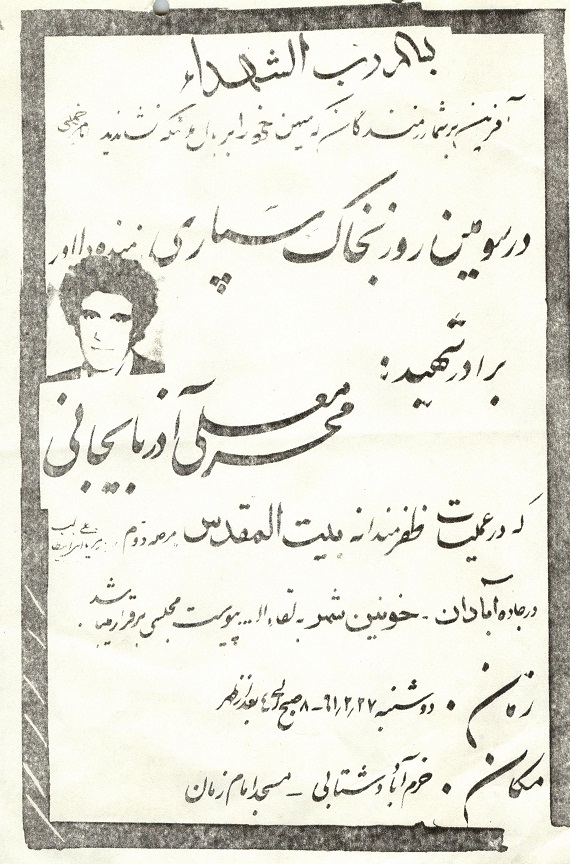 بنام رب الشهداء
آفرین بر شما رزمندگان که میهن خود را بر بال ملائکه نشاندید امام خمینی
در سومین روز بخاک سپاری رزمنده دلاور
برادر شهید:
محرمعلی آذربایجانی
که در عملیات ظفرمندانه بیت المقدس مرحله دوم
در جاده آبادان - خونین شهر - به لقاء الله پیوست مجلسی برقرار میباشد
زمان • دوشنبه ۶۱/۲/۲۷ - ۸ صبح الی ۴ بعد از ظهر
مکان • خرم آباد دشتابی - مسجد امام زمان